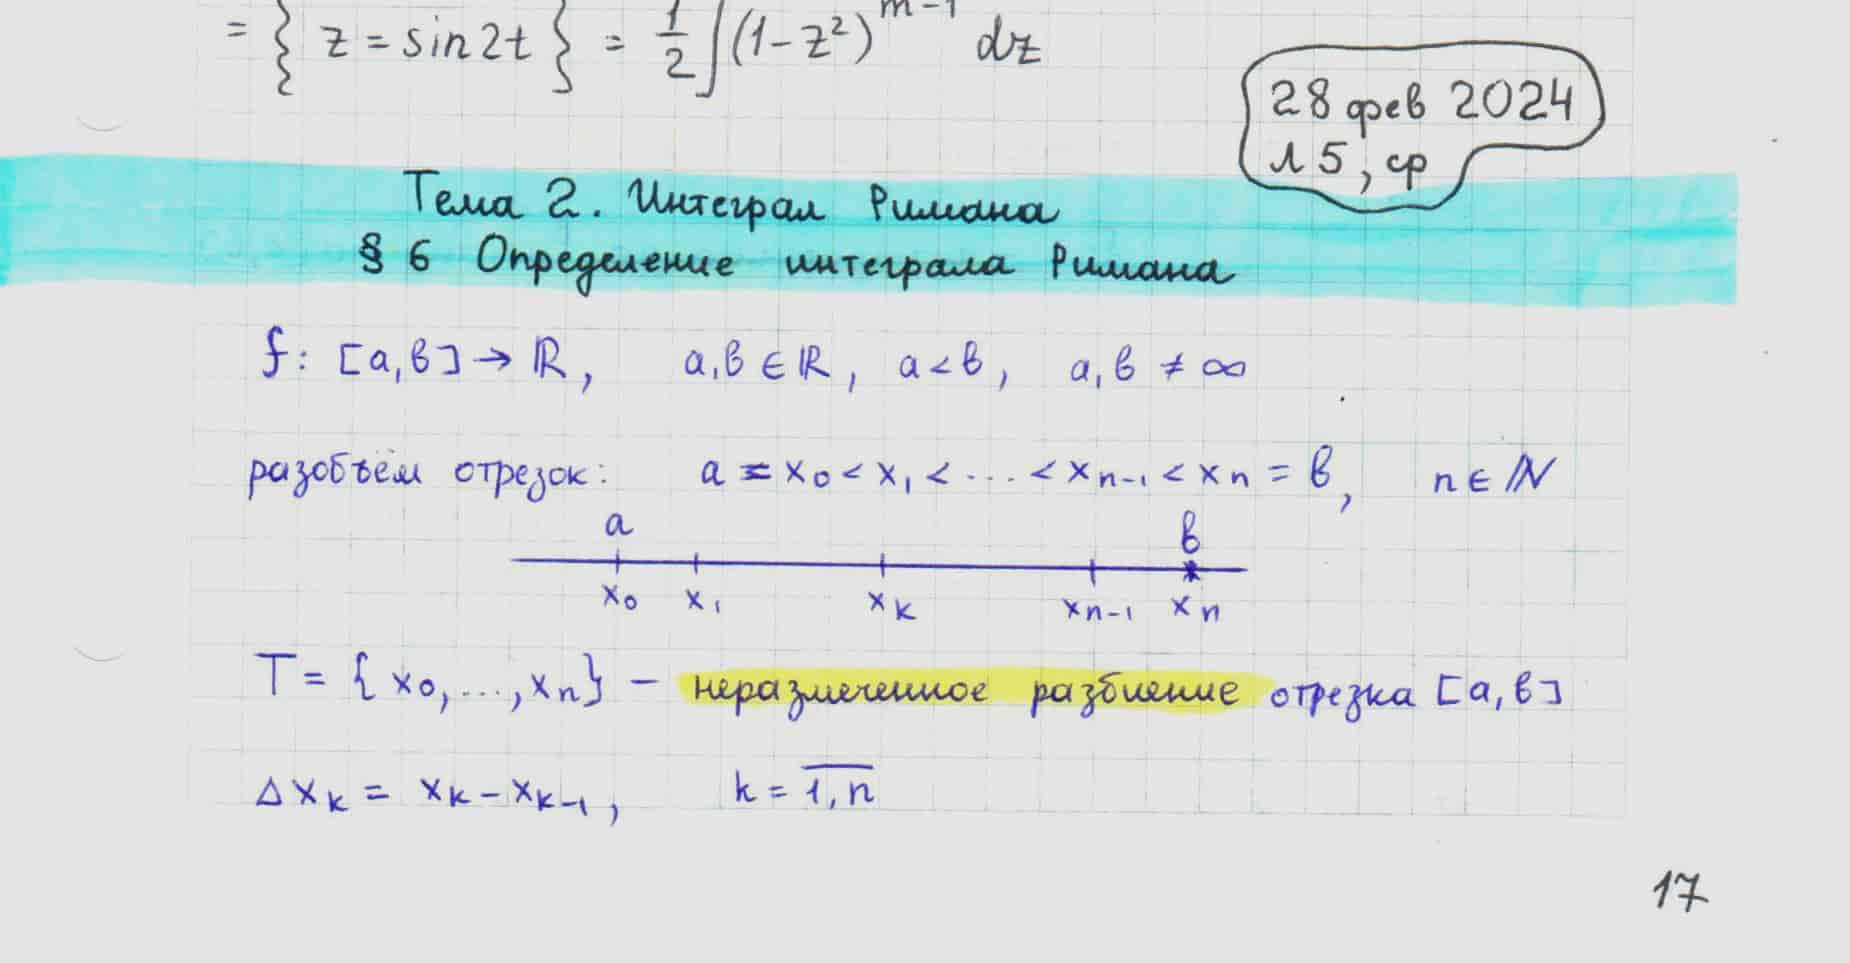 = { z = sin2t } = 1/2 ∫(1-z²)^{m-1} dz
28 фев 2024
Л 5, ср
Тема 2. Интеграл Римана
§ 6 Определение интеграла Римана
f: [a,b] → ℝ, a,b ∈ ℝ, a < b, a,b ≠ ∞
разобъём отрезок: a = x₀ < x₁ < ... < xₙ₋₁ < xₙ = b, n ∈ ℕ
a b
x₀ x₁ xₖ xₙ₋₁ xₙ
T = { x₀, ..., xₙ } – неразмеченное разбиение отрезка [a,b]
Δxₖ = xₖ - xₖ₋₁, k = \overline{1,n}
17